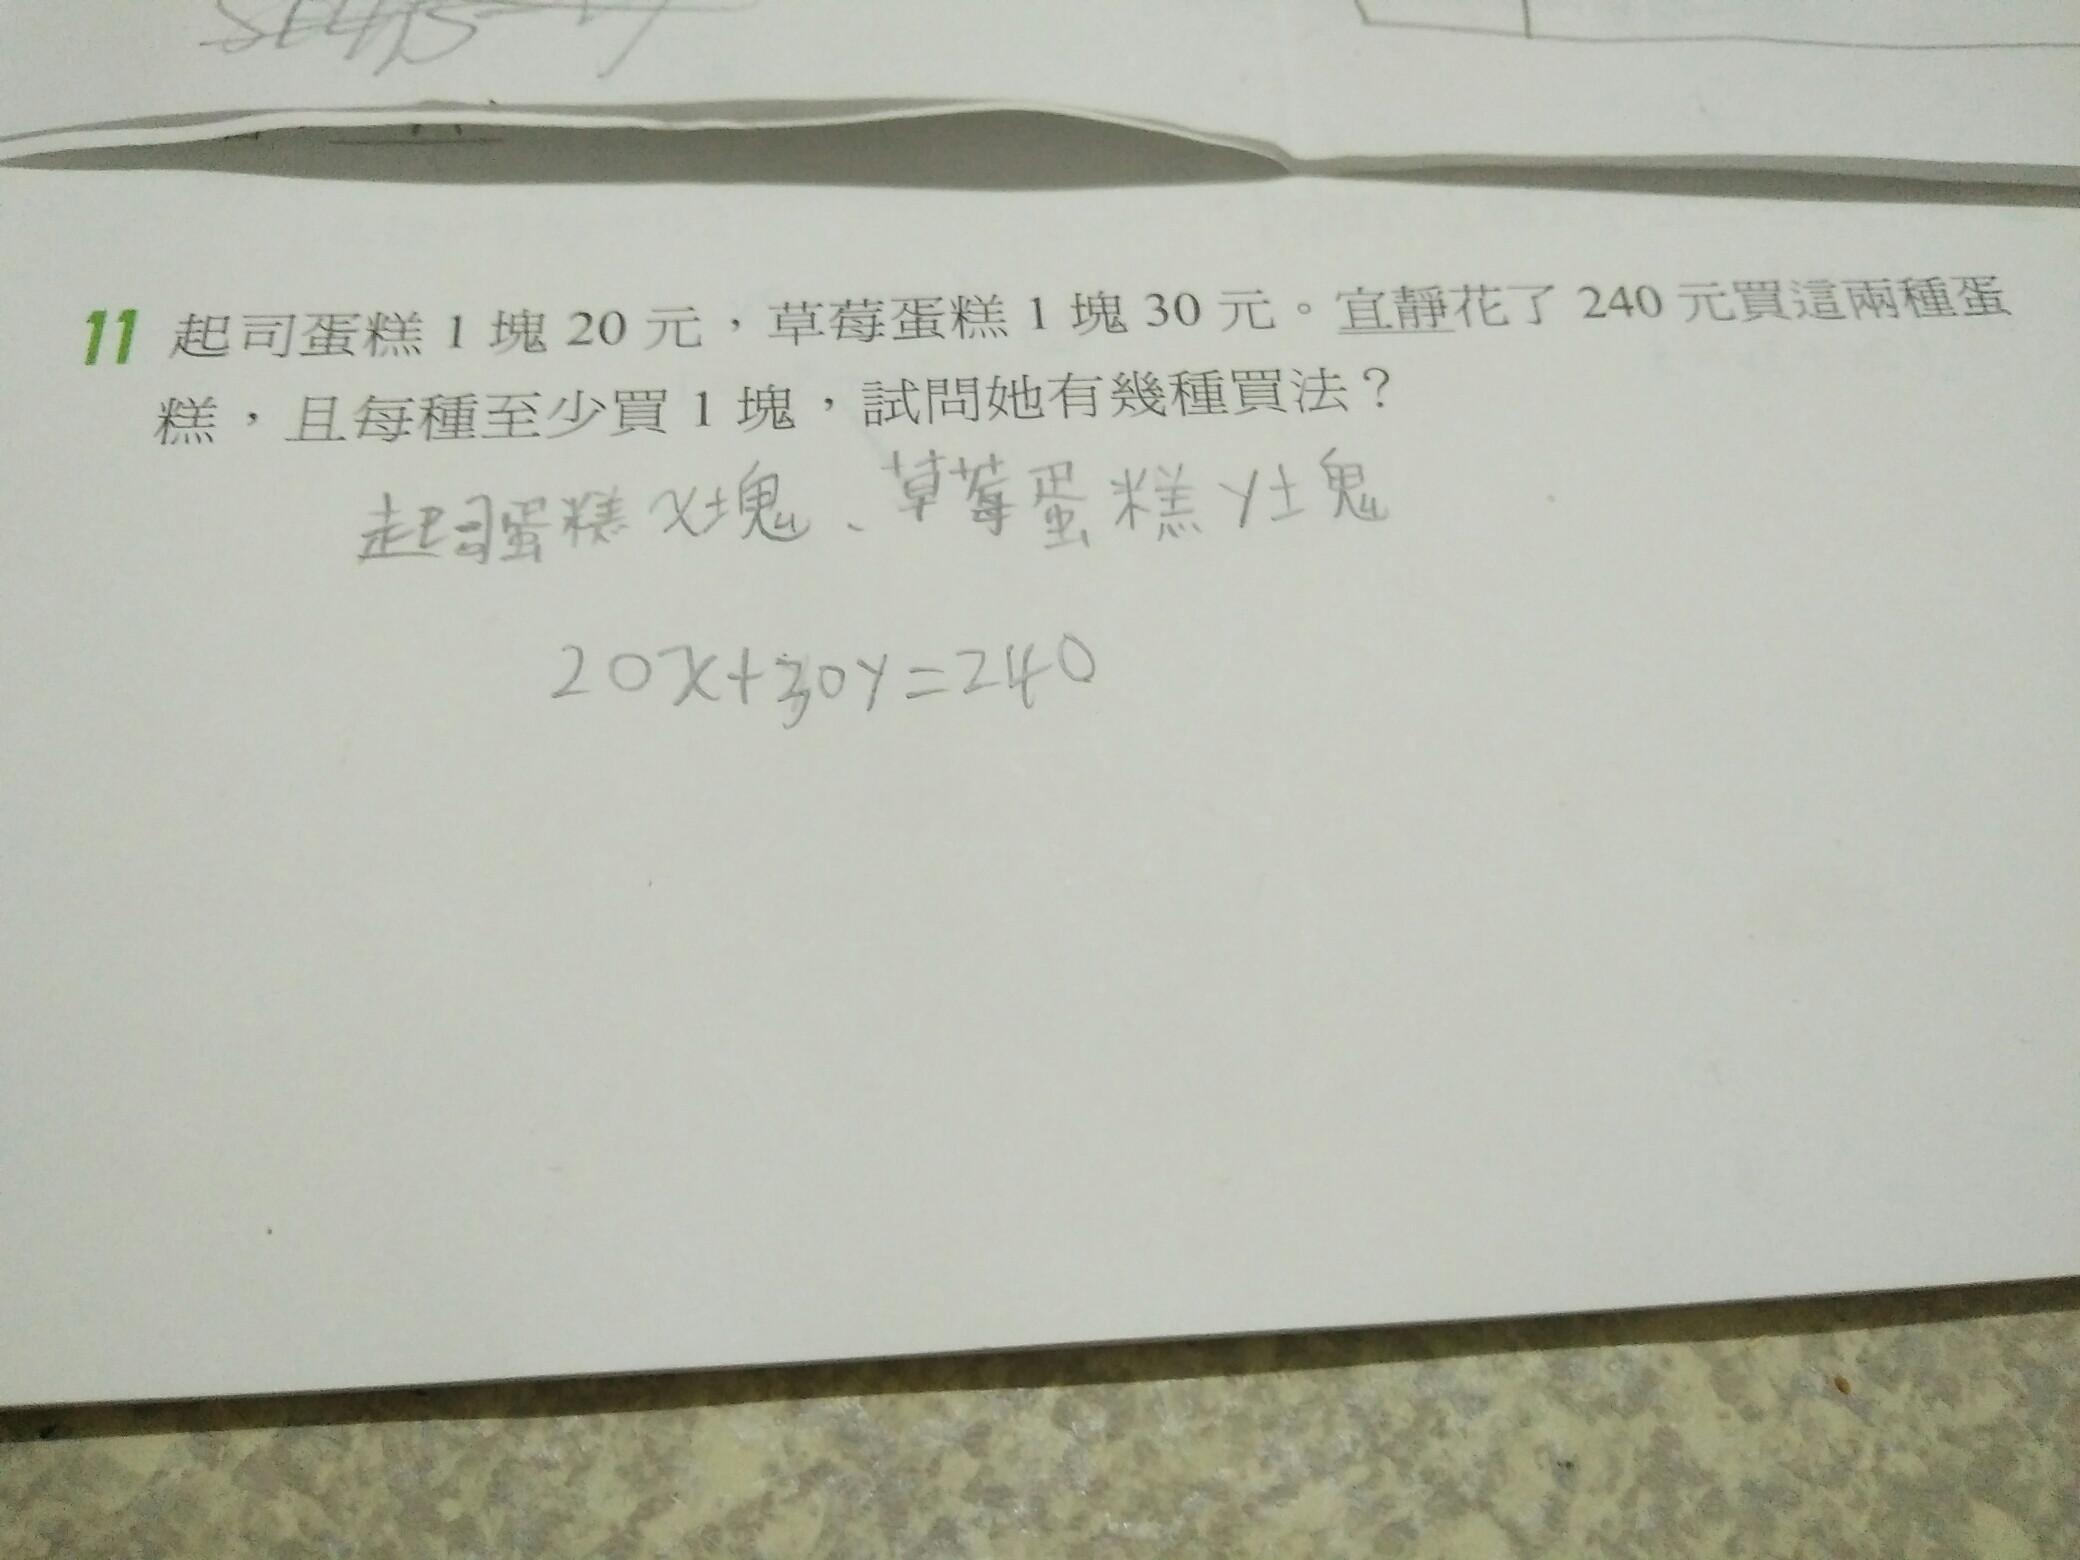 11 起司蛋糕 1 塊 20 元，草莓蛋糕 1 塊 30 元。宜靜花了 240 元買這兩種蛋
糕，且每種至少買 1 塊，試問她有幾種買法？
起司蛋糕 x塊、草莓蛋糕 y塊
20x+30y=240